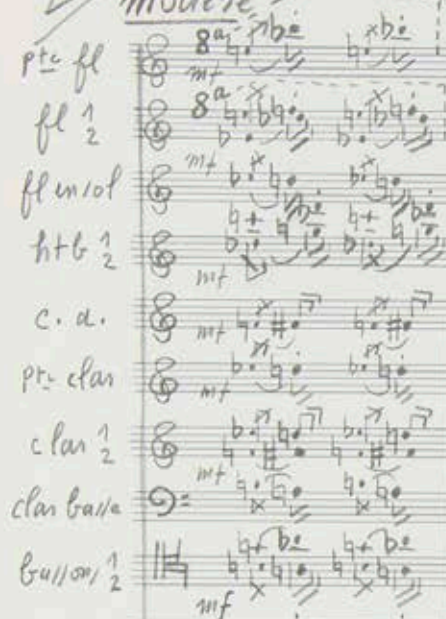 Modéré
pte fl
8a
mf
fl 1 2
8a
mf
fl en sol
htb 1 2
mf
c. a.
mf
pte clar
mf
clar 1 2
mf
clar basse
bassons 1 2
mf